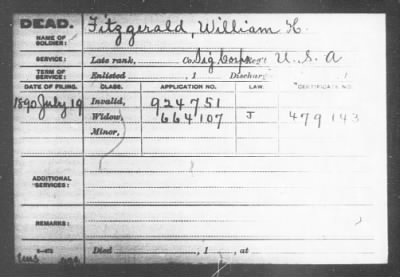 DEAD. Fitzgerald, William H.
NAME OF SOLDIER:
SERVICE: Late rank, Co. Sig Corps Reg't U. S. A
TERM OF SERVICE: Enlisted , 1 Discharged , 1
DATE OF FILING. CLASS. APPLICATION NO. LAW. CERTIFICATE NO.
1890 July 19 Invalid, 924751
Widow, 664107 J 479143
Minor,
ADDITIONAL SERVICES:
REMARKS:
Died , 1 , at